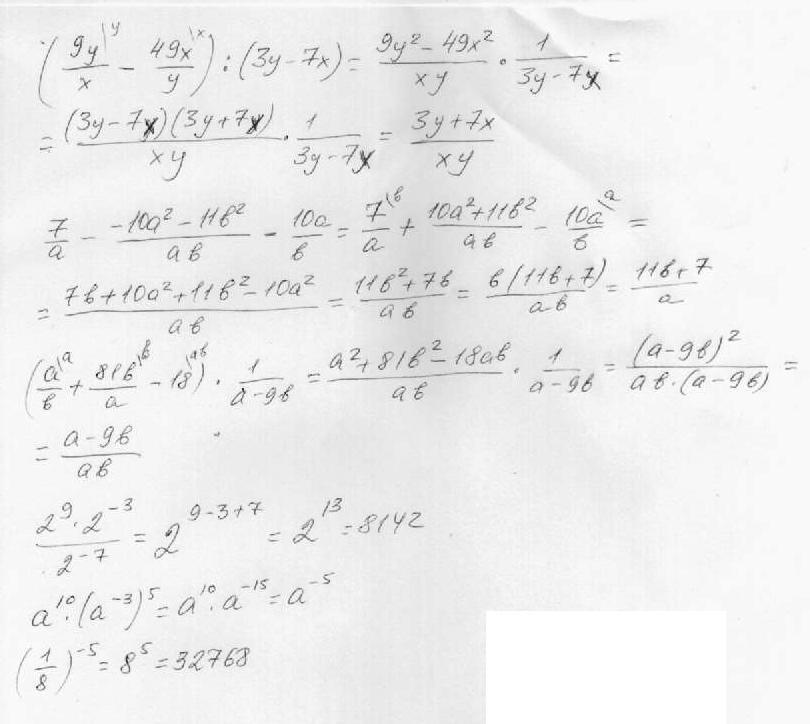 (9y/x \y − 49x/y \x) : (3y − 7x) = (9y² − 49x²)/(xy) · 1/(3y − 7x) =
= ((3y − 7x)(3y + 7x))/(xy) · 1/(3y − 7x) = (3y + 7x)/(xy)
7/a − (−10a² − 11b²)/(ab) − 10a/b = 7/a \b + (10a² + 11b²)/(ab) − 10a/b \a =
= (7b + 10a² + 11b² − 10a²)/(ab) = (11b² + 7b)/(ab) = (b(11b + 7))/(ab) = (11b + 7)/a
(a/b \a + 81b/a \b − 18 \ab) · 1/(a − 9b) = (a² + 81b² − 18ab)/(ab) · 1/(a − 9b) = (a − 9b)²/(ab · (a − 9b)) =
= (a − 9b)/(ab)
(2⁹ · 2⁻³)/(2⁻⁷) = 2⁹⁻³⁺⁷ = 2¹³ = 8142
a¹⁰ · (a⁻³)⁵ = a¹⁰ · a⁻¹⁵ = a⁻⁵
(1/8)⁻⁵ = 8⁵ = 32768